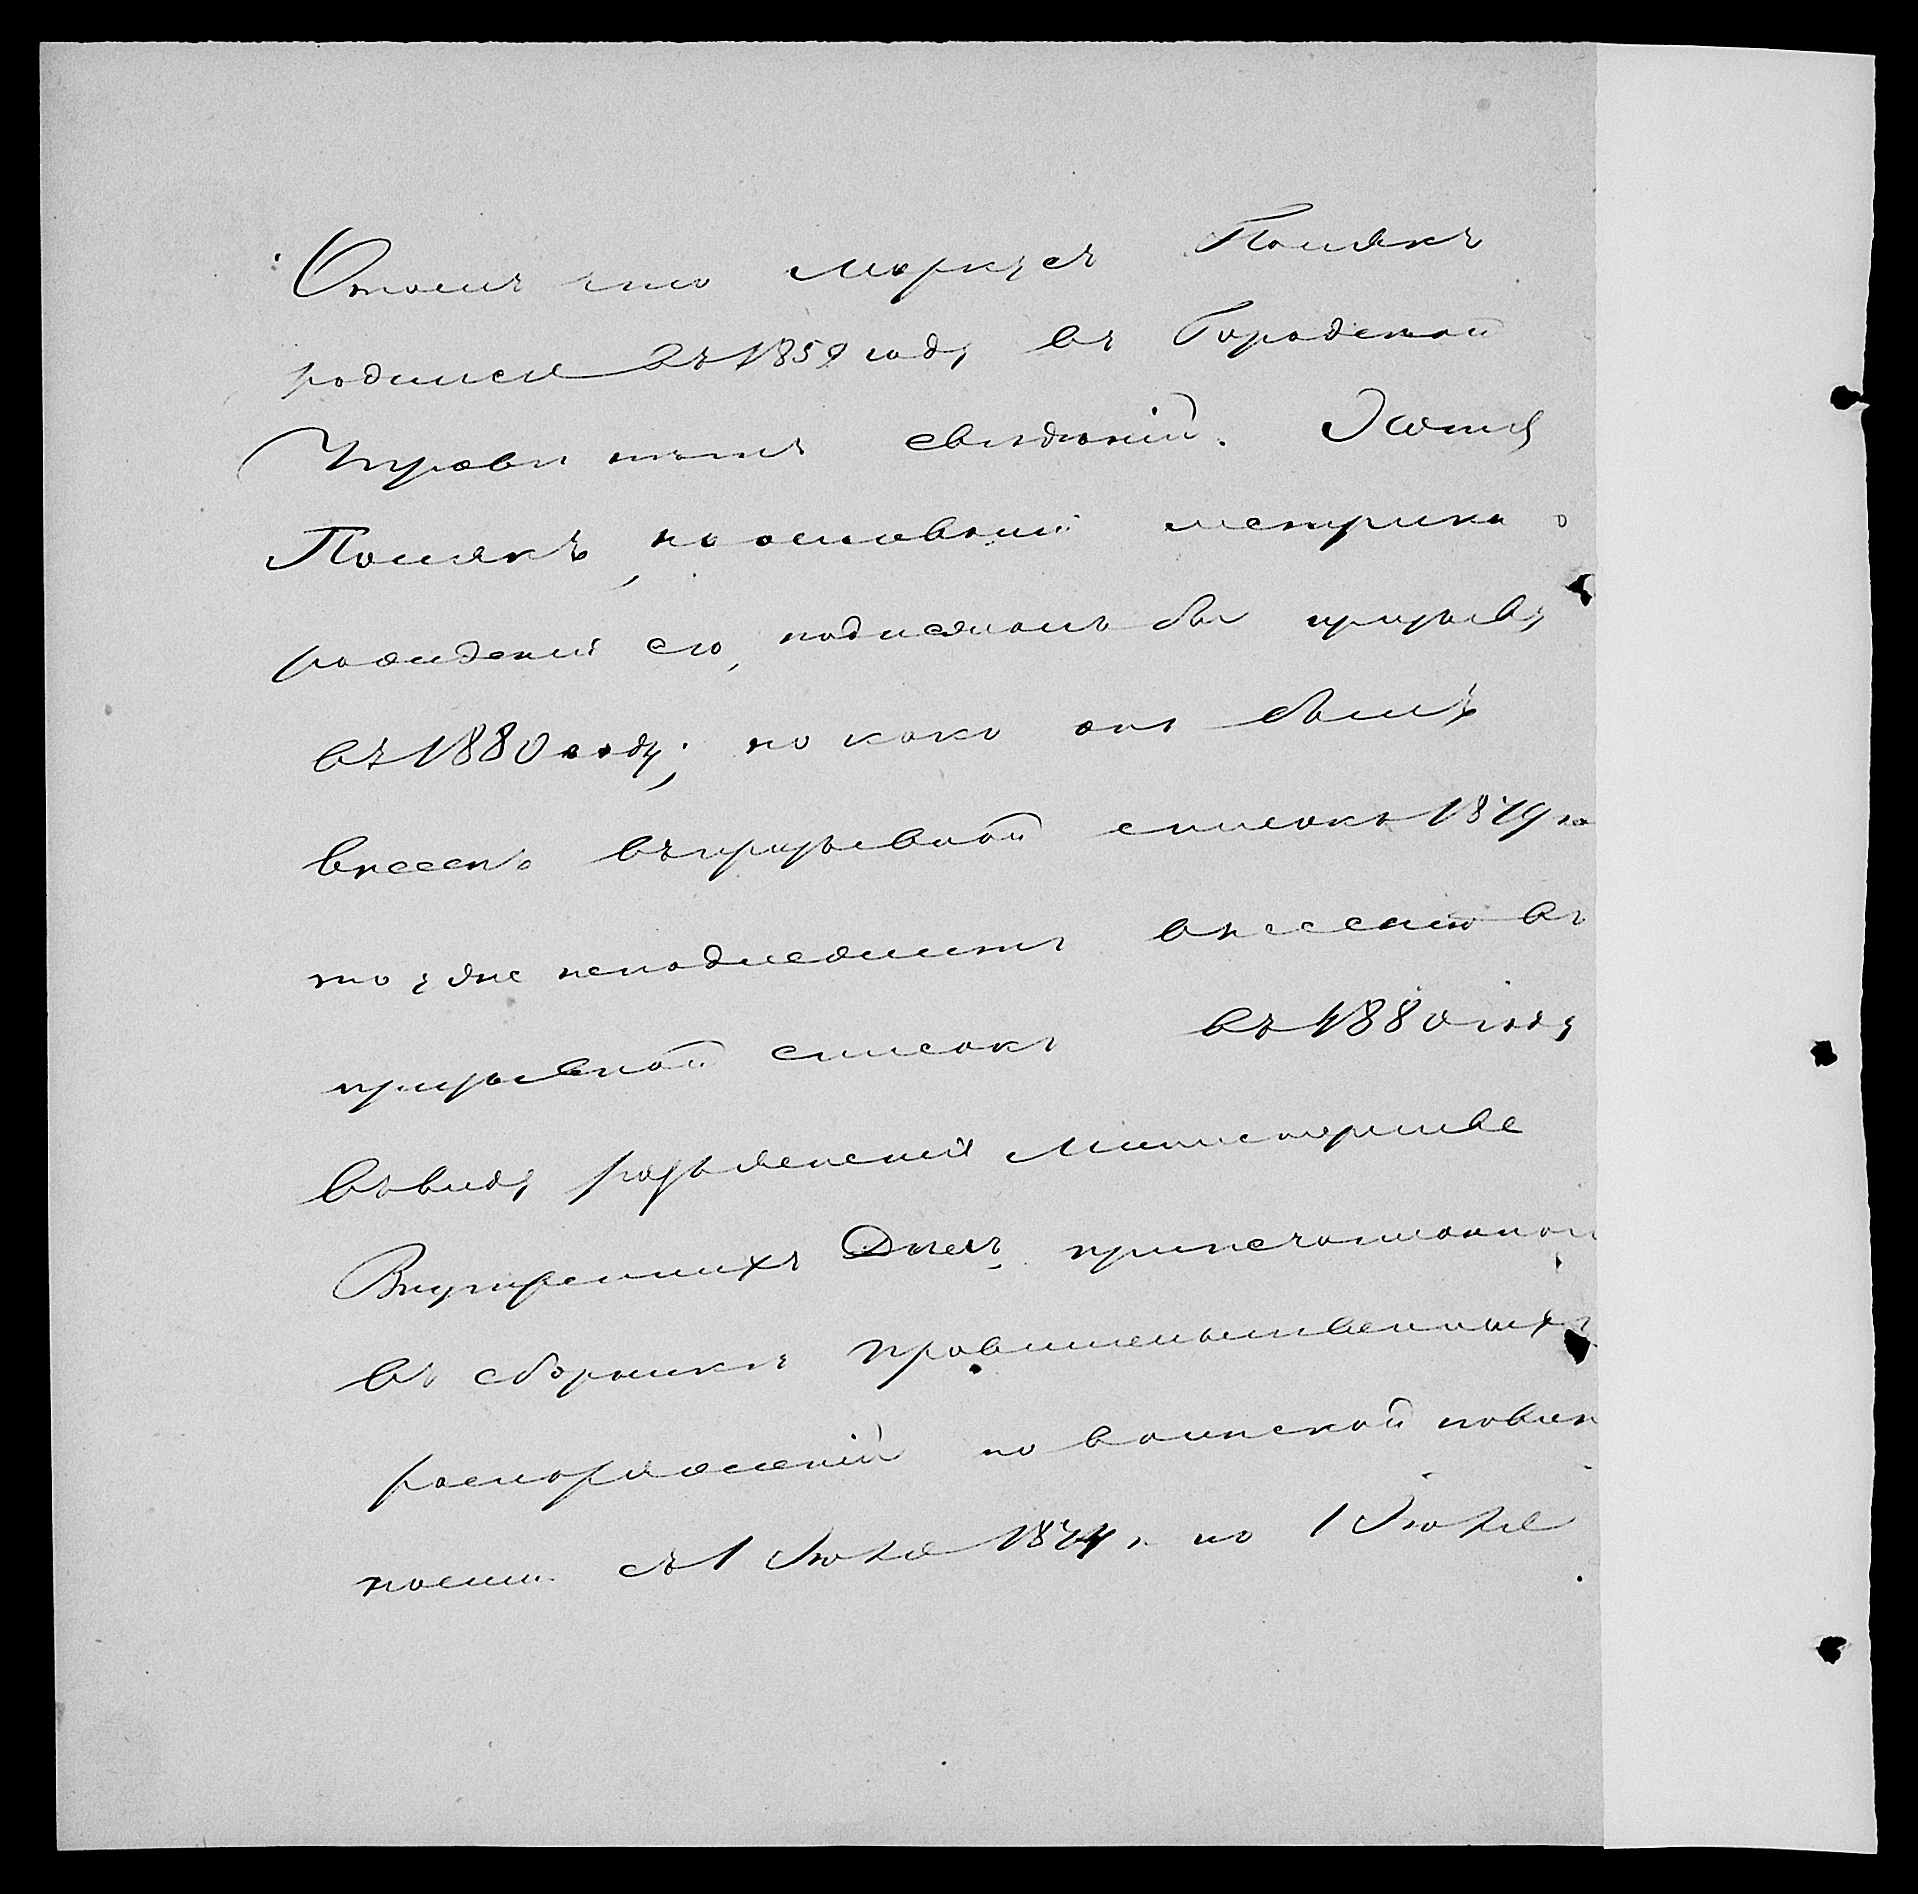 О томъ что Маркусъ Полякъ
родился въ 1859 году въ Городской
Управѣ нѣтъ свѣдѣній. Хотя
Полякъ, на основаніи метрики о
рожденіи его, подлежалъ бы призыву
въ 1880 году; но какъ онъ былъ
внесенъ въ призывной списокъ 1879 го
то уже неподлежитъ внесенію въ
призывной списокъ въ 1880 году
въ виду разъясненія Министерства
Внутреннихъ Дѣлъ, припечатанной
въ сборникѣ правительственныхъ
распоряженій по воинской повин
ности съ 1 Іюля 1874 г. по 1 Іюля